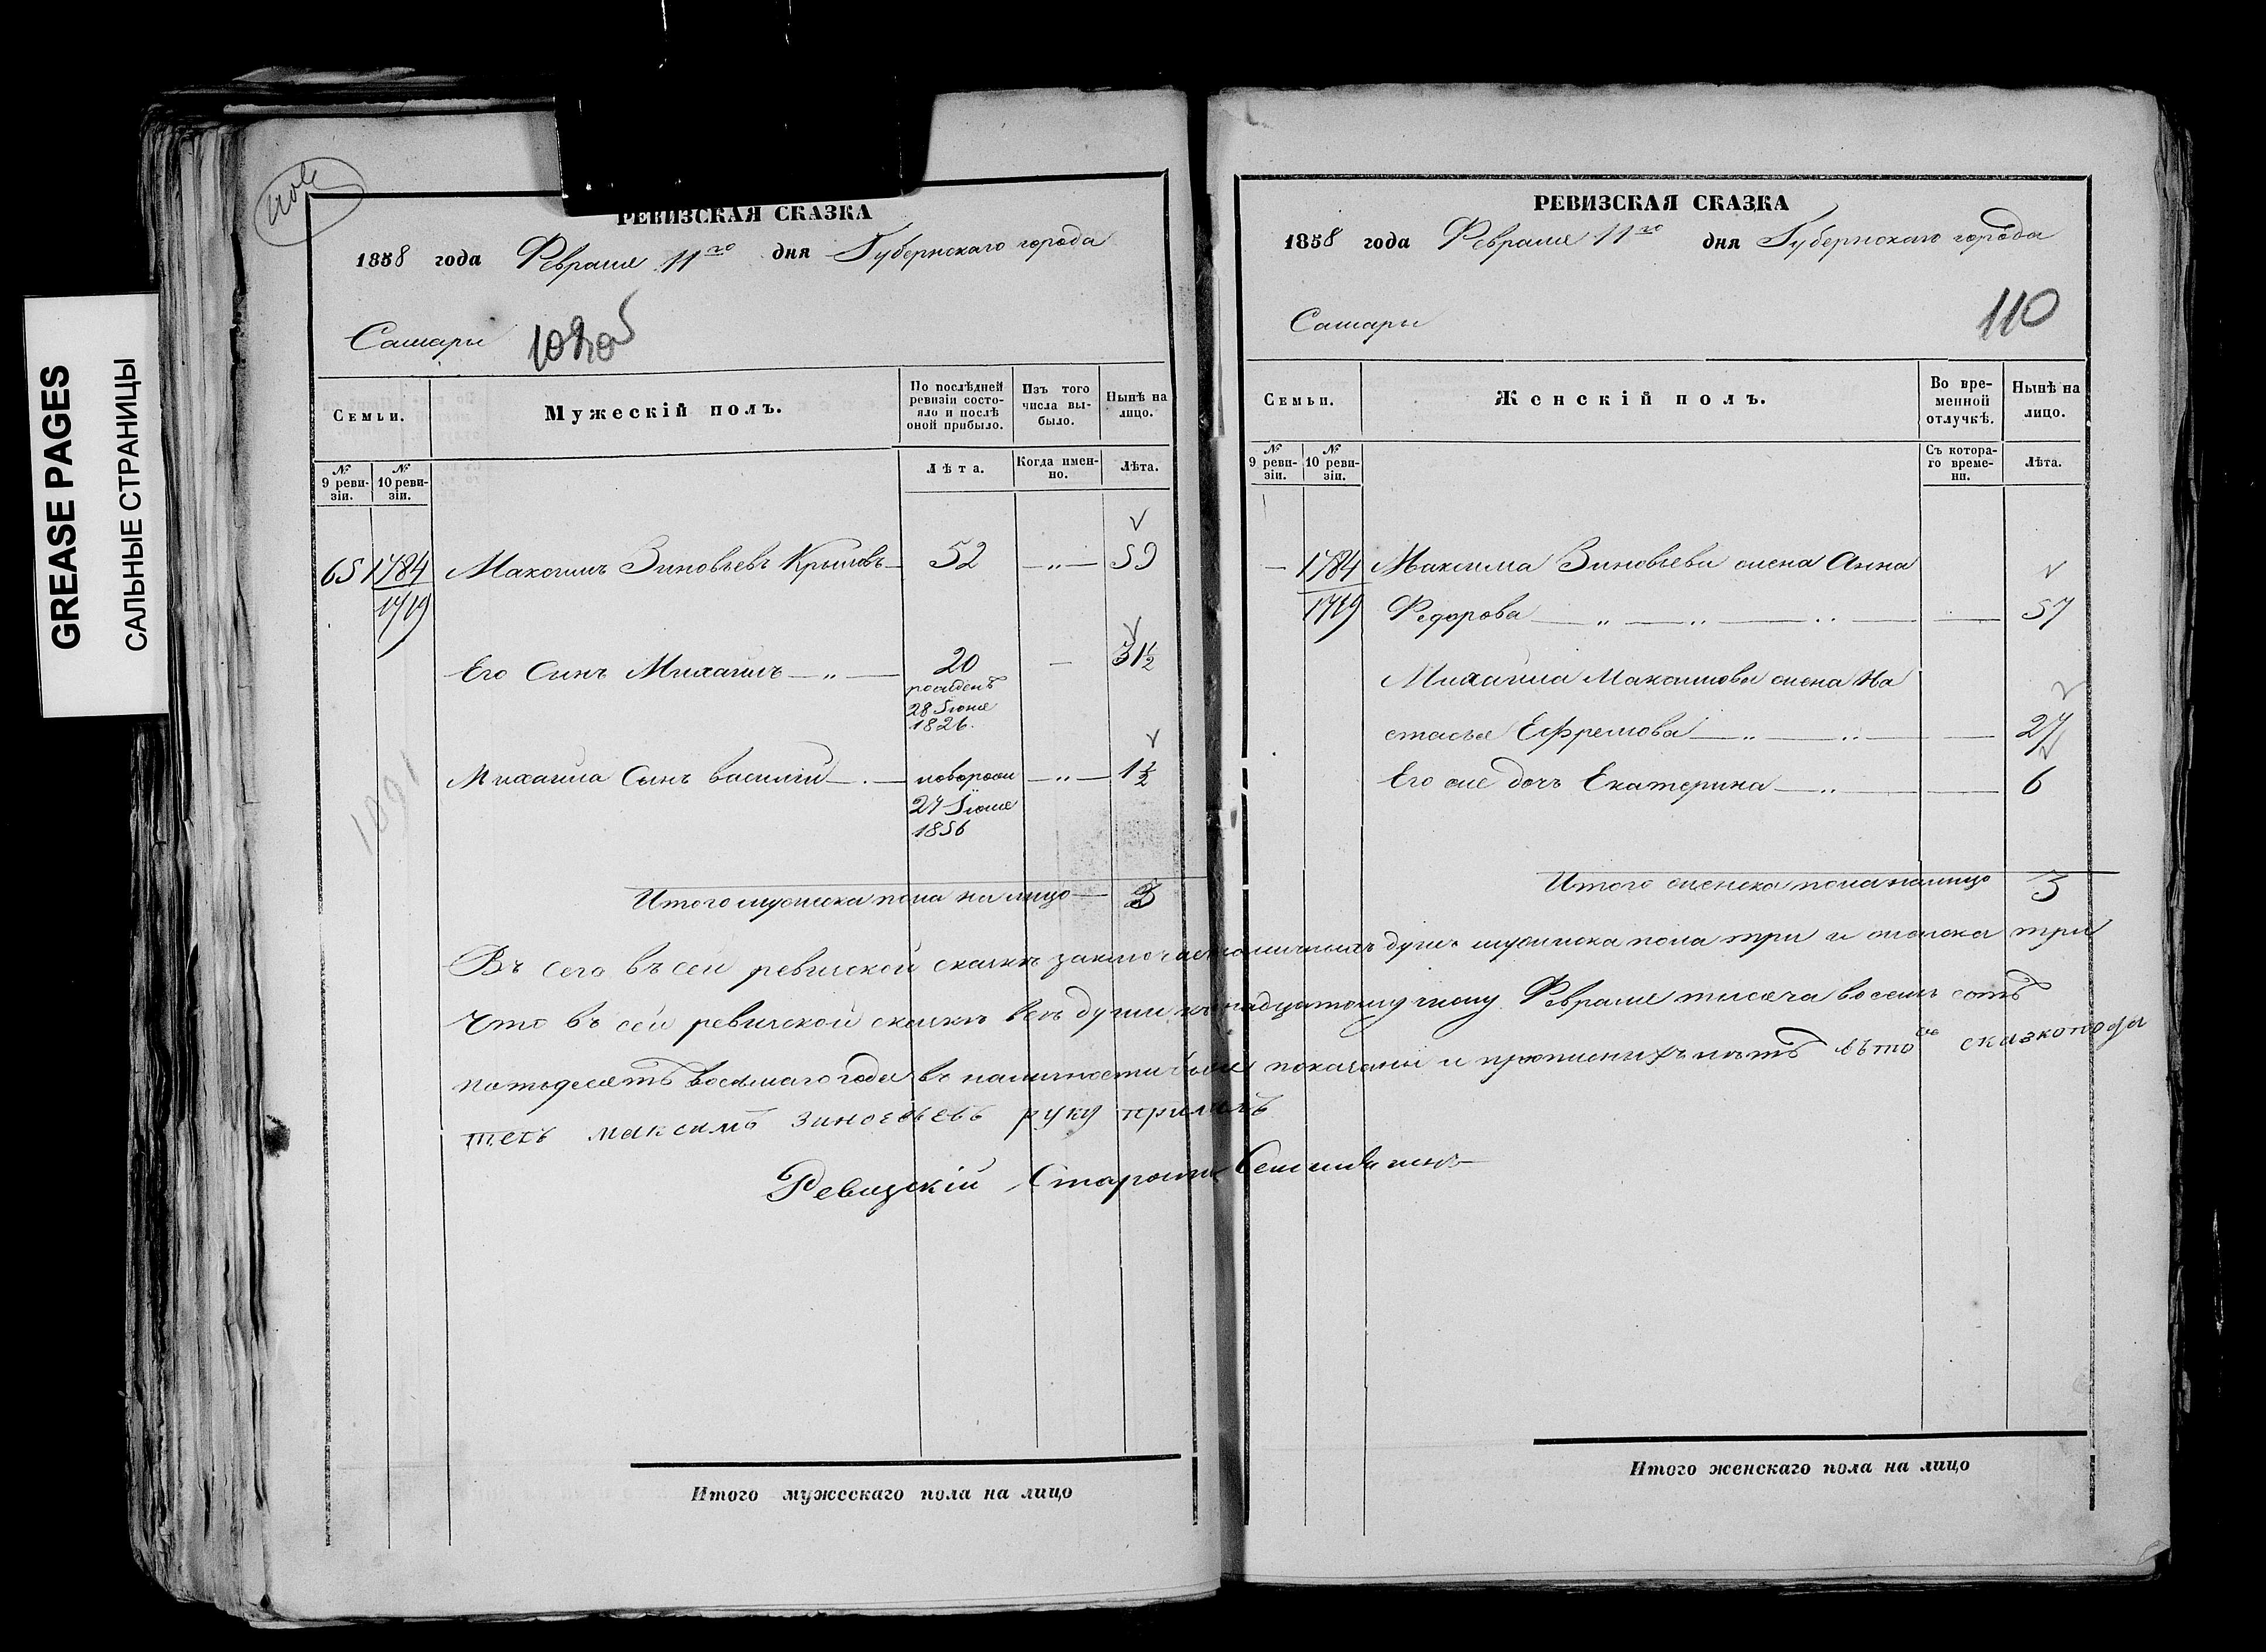 GREASE PAGES
САЛЬНЫЕ СТРАНИЦЫ
РЕВИЗСКАЯ СКАЗКА
1858 года Февраля 11го дня Губернскаго города
Самары
Семьи.
Мужескій полъ.
По послѣдней ревизіи состояло и послѣ оной прибыло.
Изъ того числа выбыло.
Нынѣ на лицо.
№ 9 ревизіи.
№ 10 ревизіи.
Лѣта.
Когда именно.
Лѣта.
651 1784 Максимъ Зиновьевъ 52 — „ — 59
1719
Его Сынъ Михаилъ — „ — 20 — 31½
рожденъ
28 Іюня
1826.
Михаила Сынъ Василій — новорож — „ — 1½
27 Іюля
1856
Итого мужска пола на лицо — 3
РЕВИЗСКАЯ СКАЗКА
1858 года Февраля 11го дня Губернскаго города
110
Самары
Семьи.
Женскій полъ.
Во временной отлучкѣ.
Нынѣ на лицо.
№ 9 ревизіи.
№ 10 ревизіи.
Съ котораго времени.
Лѣта.
— 1784 Максима Зиновьева жена Анна
1719 Федорова — „ — 57
Михаила Максимова жена На
стасья Ефремова — „ — 27
Его же дочь Екатерина — „ — 6
Итого женска пола налицо 3
Въ сего въ сей ревиской скаскѣ заключается наличныхъ душъ мужиска пола три и женска три
Что въ сей ревиской скаскѣ всѣ души Февраля тысяча восемь сотъ
пятьдесятъ восьмаго года въ наличности были показаны и прописныхъ нѣтъ вътомъ сказкопода
тель максимъ зиновьевъ руку прилжилъ
Ревизскій Староста
Итого мужескаго пола на лицо
Итого женскаго пола на лицо